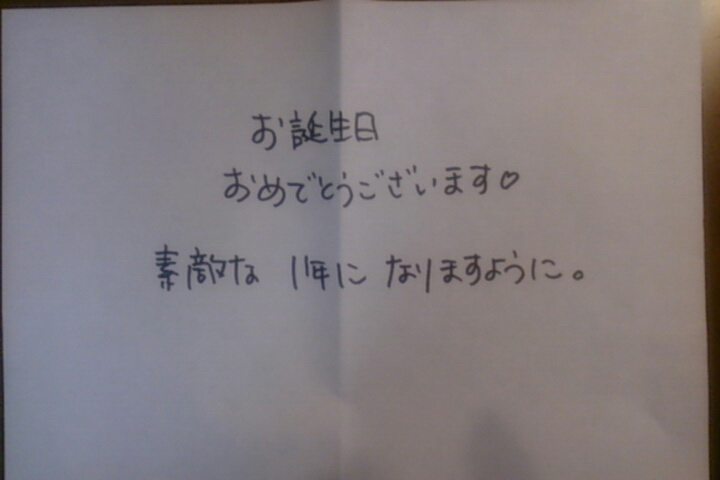 お誕生日
おめでとうございます♡
素敵な 1年に なりますように。